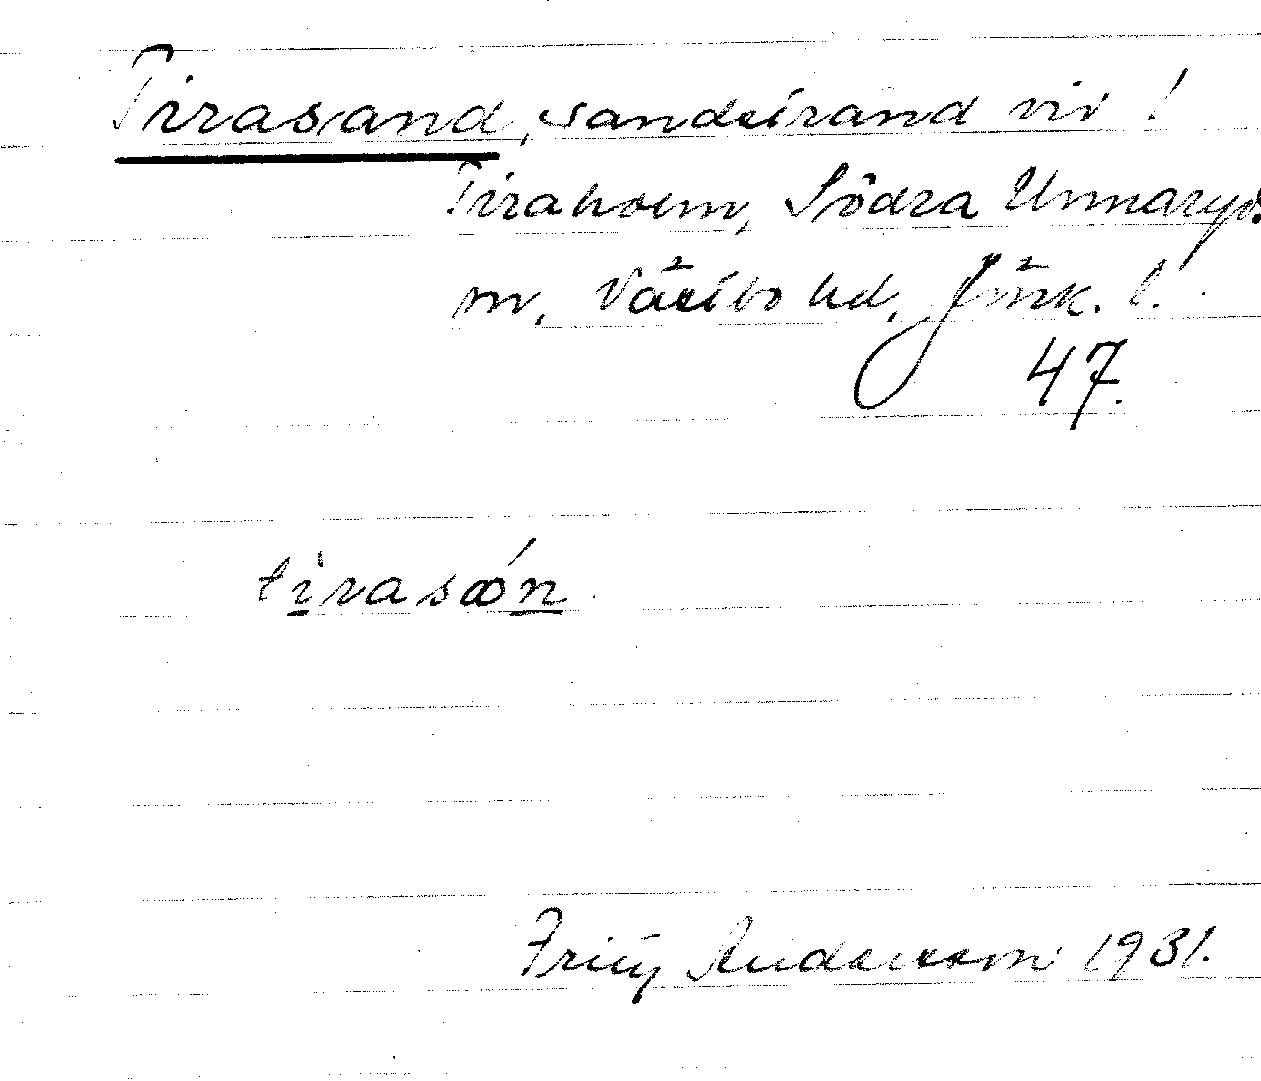 Tirasand, sandstrand vid !
Tiraholm, Södra Unnaryds
sn, Västbo hd, Jönk. l.
47.
tirasón
Fritz Andersson 1931.